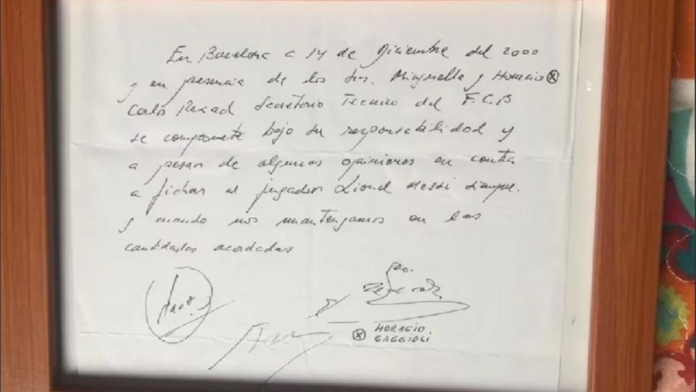 En Barcelona a 14 de Diciembre del 2000
y en presencia de los Srs. Minguella y Horacio ⓧ
Carlo Rexach Secretario Tecnico del F.C.B
se compromete bajo su responsabilidad y
a pesar de algunas opiniones en contra
a fichar al jugador Lionel Messi siempre
y cuando nos mantengamos en las
cantidades acordadas
ⓧ HORACIO
GAGGIOLI